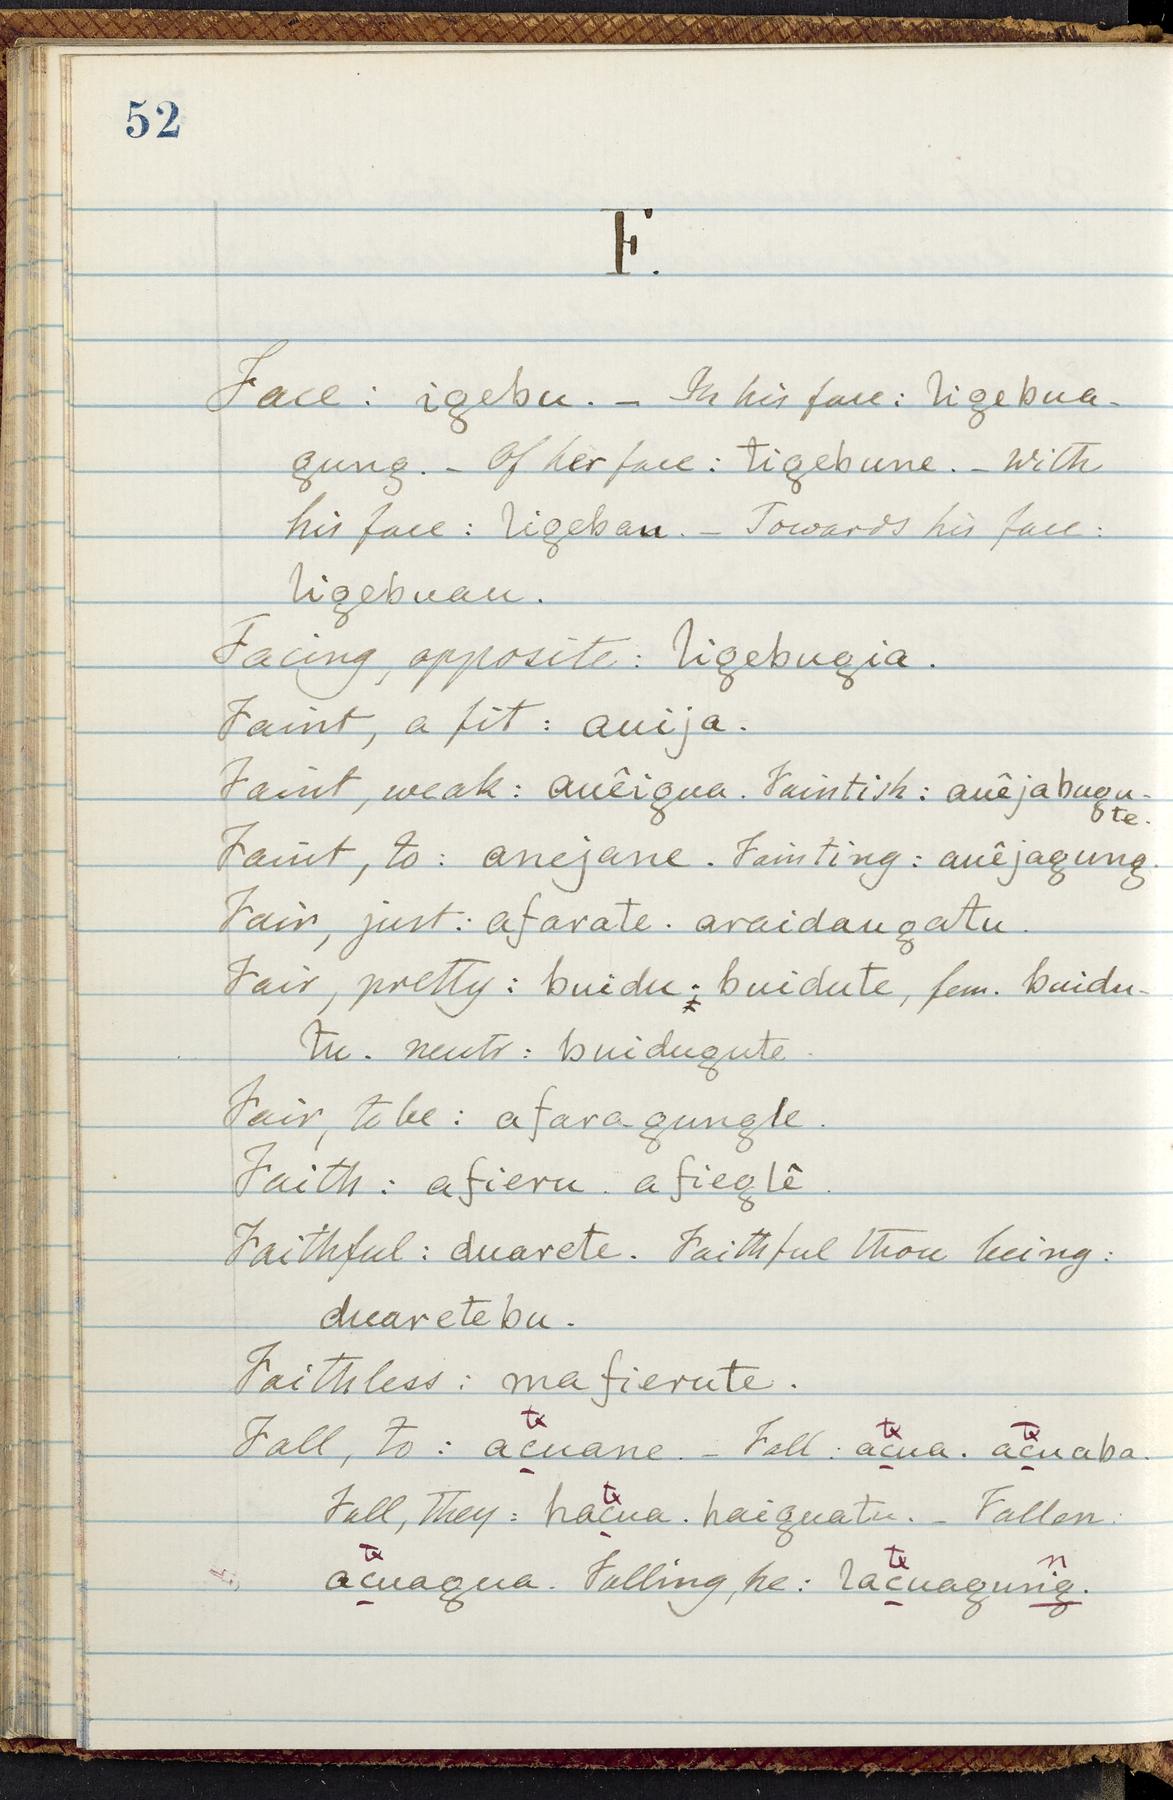 52
F.
Face: igebu. – In his face: ligebua-
gung. – Of her face: tigebune. – With
his face: ligebau. – Towards his face:
ligebuau.
Facing, opposite: ligebugia.
Faint, a fit: auija.
Faint, weak: auêigua. Faintish: auêjabugu-
te.
Faint, to: anejane. Fainting: auêjagung.
Fair, just: afarate. araidaugatu.
Fair, pretty: buidu; buidute, fem. buidu-
tu. neutr: buidugute.
Fair, to be: afaragungle.
Faith: afieru. afieglê.
Faithful: duarete. Faithful thou being:
duaretebu.
Faithless: mafierute.
tx tx tx
Fall, to: acuane. – Fall: acua. acuaba.
tx
Fall, they: hacua. haiguatu. – Fallen:
tx tx n
acuagua. Falling, he: lacuagung.